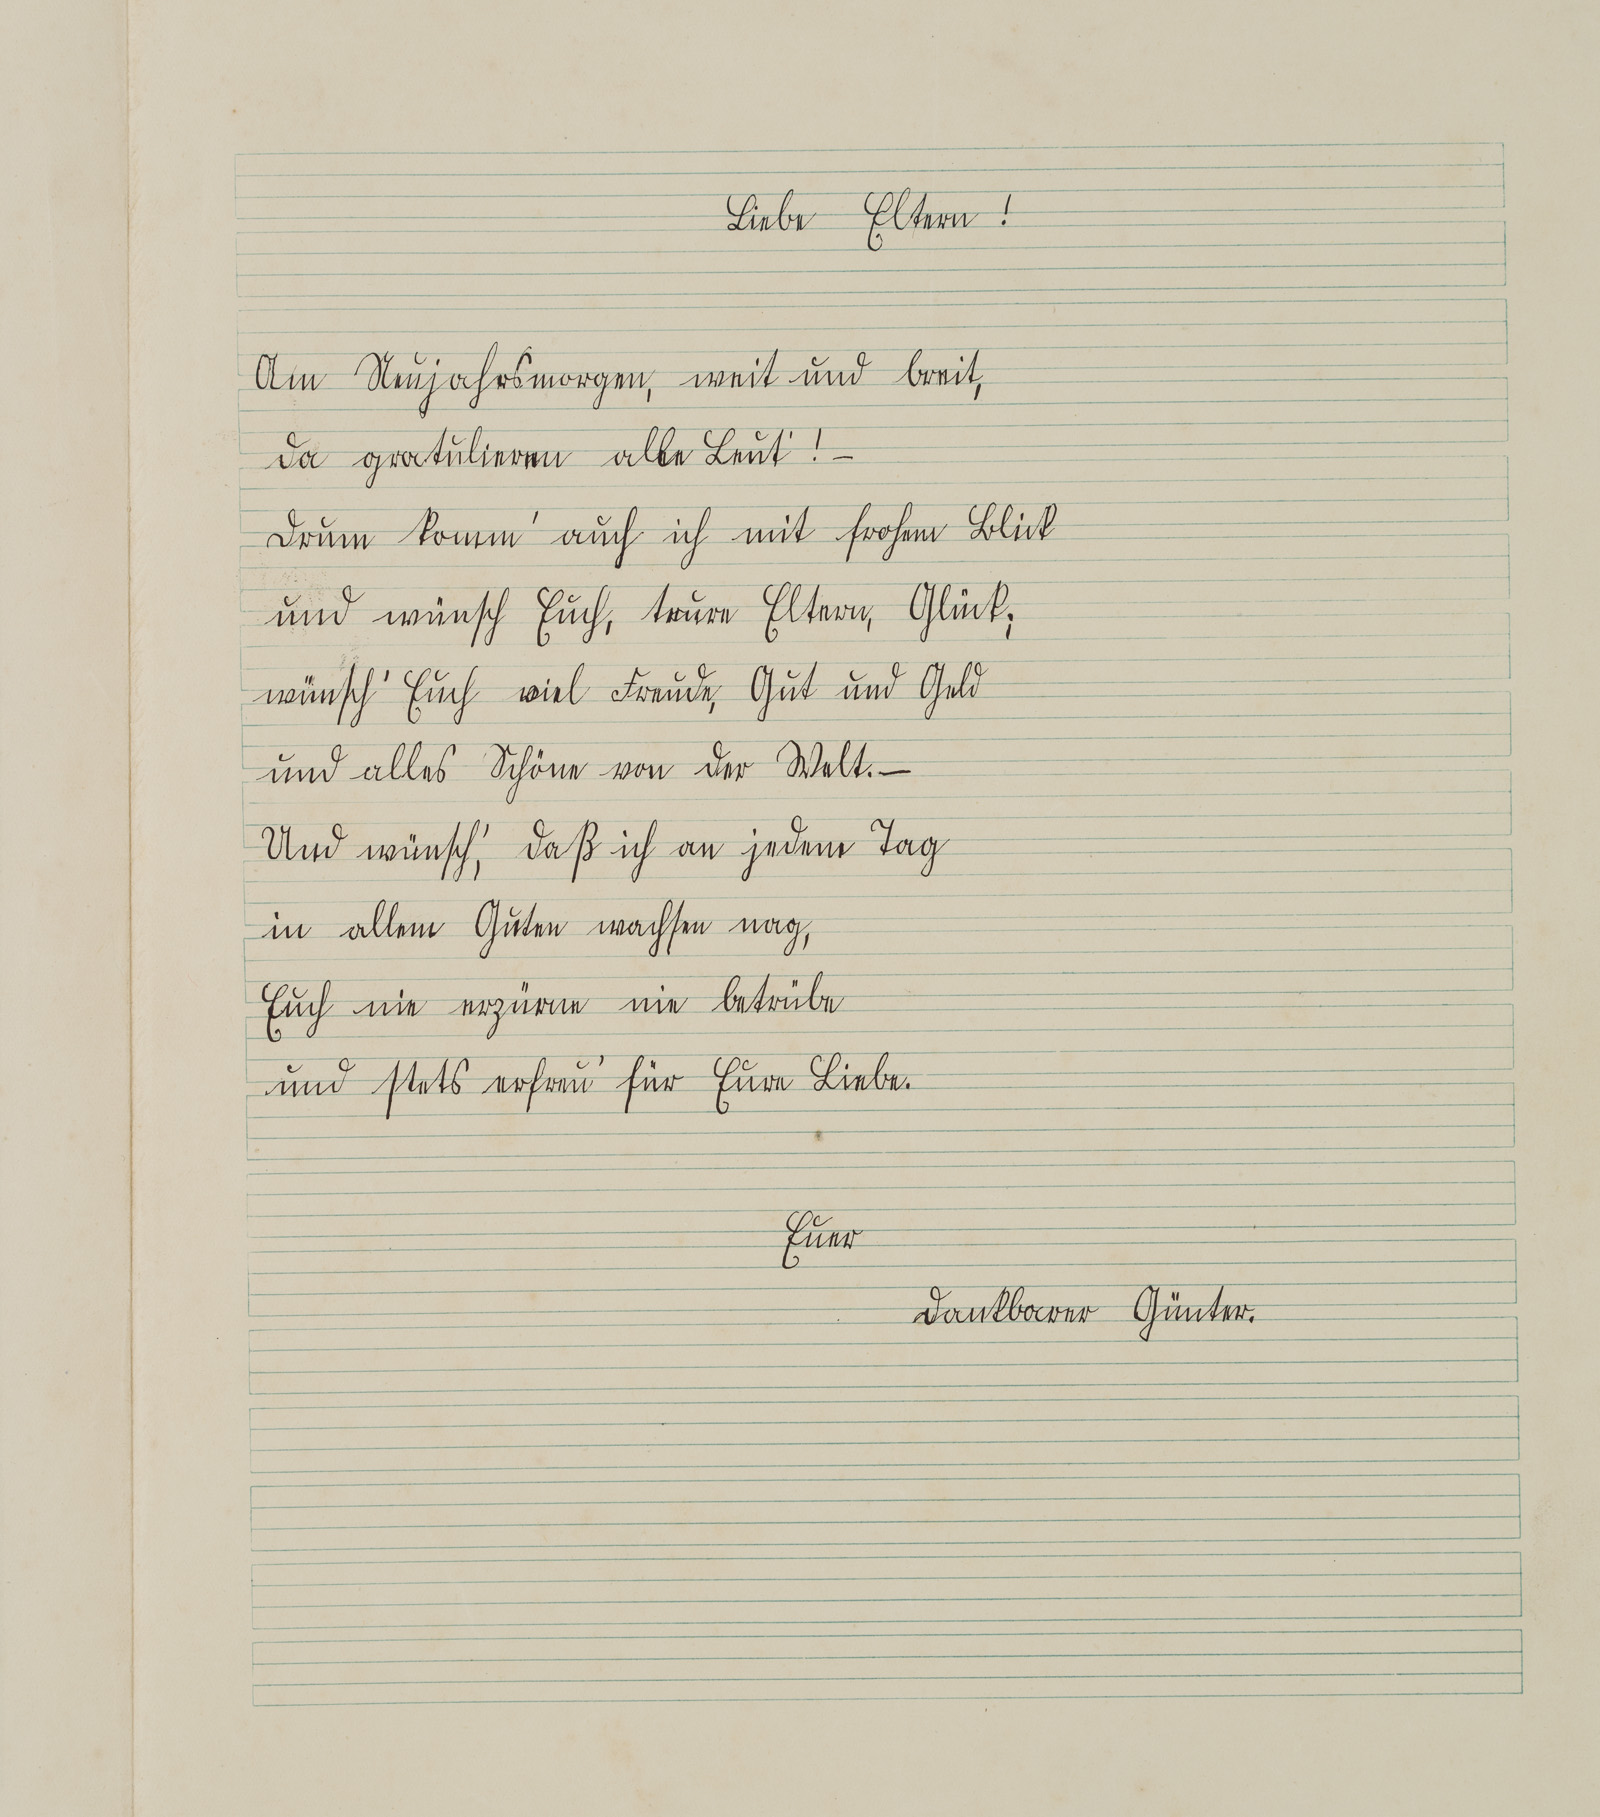 Liebe Eltern!
Am Neujahrsmorgen, weit und breit,
da gratulieren alle Leut'! –
Drum komm' auch ich mit frohem Blick
und wünsch Euch, teure Eltern, Glück;
wünsch' Euch viel Freude, Gut und Geld
und alles Schöne von der Welt. –
Und wünsch', daß ich an jedem Tag
in allem Guten wachsen mag,
Euch nie erzürne nie betrübe
und stets erfreu' für Eure Liebe.
Euer
dankbarer Günter.